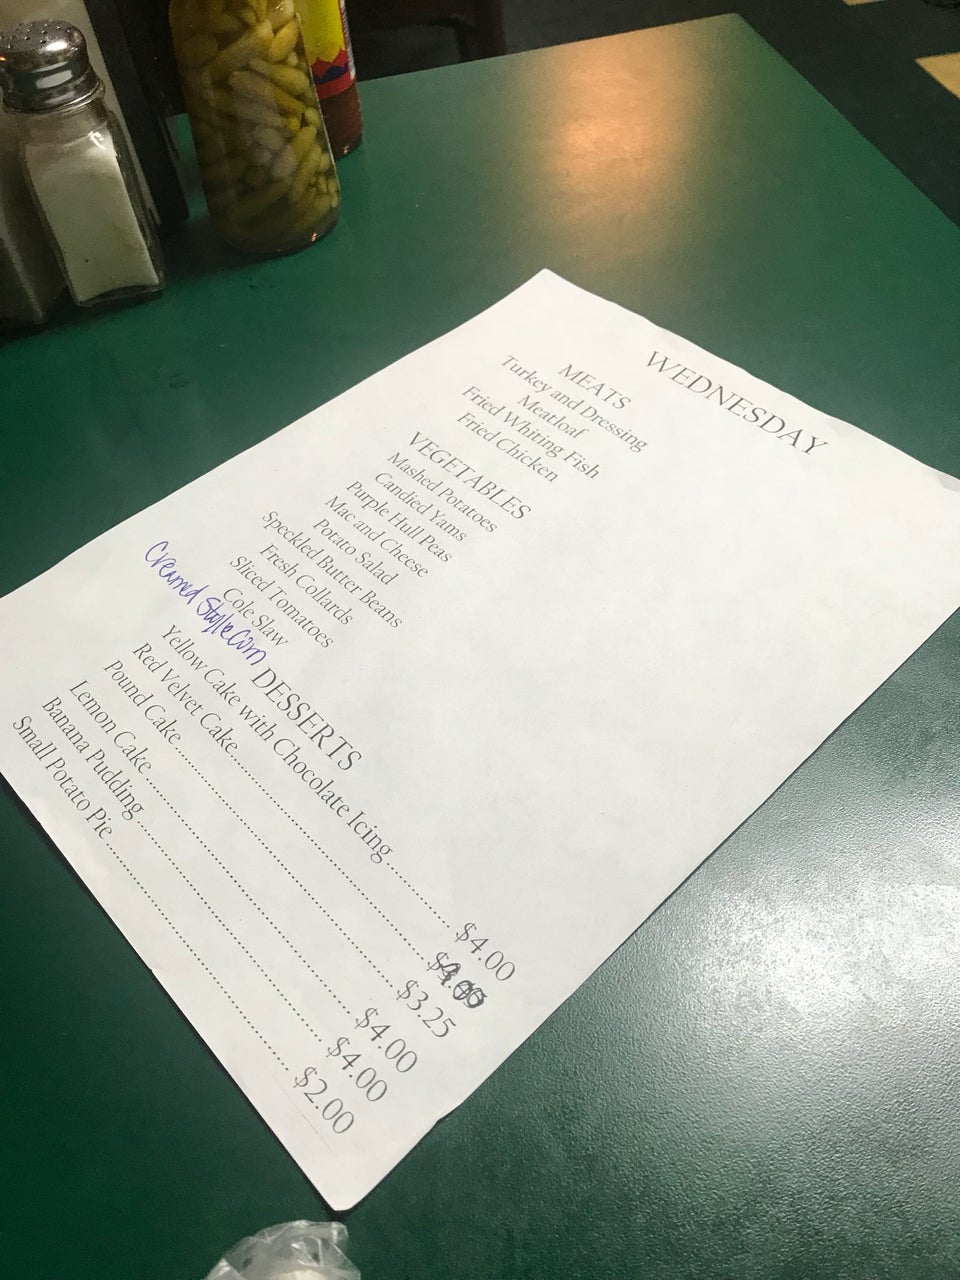 WEDNESDAY
MEATS
Turkey and Dressing
Meatloaf
Fried Whiting Fish
Fried Chicken
VEGETABLES
Mashed Potatoes
Candied Yams
Purple Hull Peas
Mac and Cheese
Potato Salad
Speckled Butter Beans
Fresh Collards
Sliced Tomatoes
Cole Slaw
Creamed Style Corn
DESSERTS
Yellow Cake with Chocolate Icing ........ $4.00
Red Velvet Cake ........
Pound Cake ........ $3.25
Lemon Cake ........ $4.00
Banana Pudding ........ $4.00
Small Potato Pie ........ $2.00